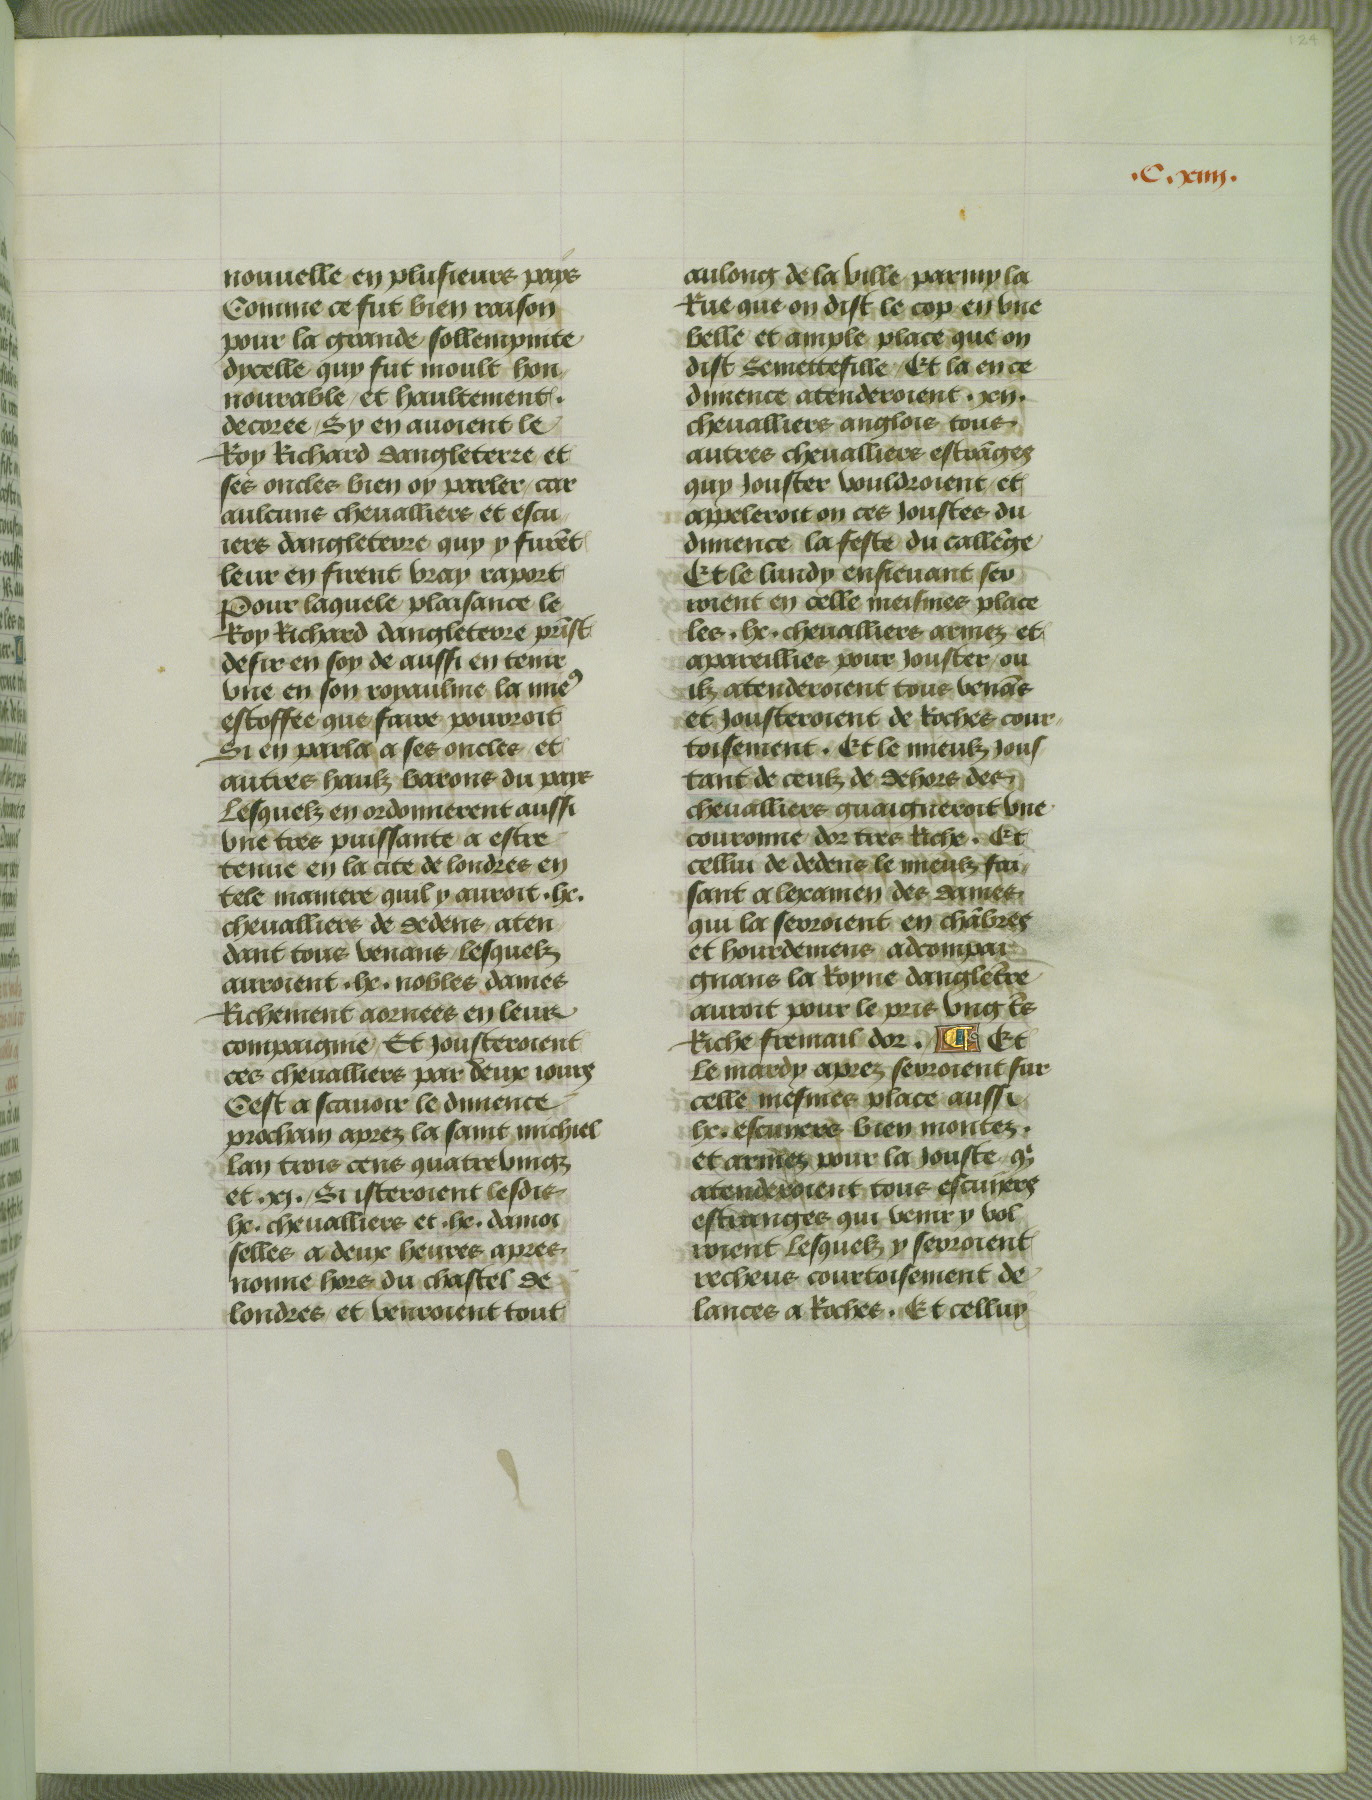 124
.C.xiiij.
nouuelle en plusieurs pays
Comme ce fut bien raison
pour la grande sollempnite
dycelle quy fut moult hon
nourable et haultement.
decoree / Sy en auoient le
Roy Richard dangleterre et
ses oncles bien oy parler / car
aulcuns cheualliers et escu
iers dangleterre quy y furēt
leur en firent vray raport
Pour laquele plaisance le
Roy Richard dangleterre prīst
desir en soy de aussi en tenir
vne en son royaulme la mieꝰ
estoffee que faire pourroit
Si en parla a ses oncles et
autres haulz barons du pays
Lesquelz en ordonnerent aussi
vne tres puissante a estre
tenue en la cite de londres en
tele maniere quil y auroit .lx.
cheualliers de dedens aten
dant tous venans / lesquelz
auroient .lx. nobles dames
Richement aornees en leur
compaignie / Et Jousteroient
ces cheualliers par deux iours
Cest a scauoir le dimence
prochain aprez la saint michiel
lan trois cens quatre vingz
et .xj. / Si isteroient lesdis
lx. cheualliers et .lx. damoi
selles a deux heures apres
nonne hors du chastel de
londres et venroient tout
aulong de la ville parmy la
Rue que on dist le cop en vne
belle et ample place que on
dist Semettefille / Et la en ce
dimence atenderoient .xij.
cheualliers anglois tous
autres cheualliers estrāgez
quy Jouster vouldroient et
appeleroit on ces Joustes du
dimence la feste du callēge
Et le lundy ensieuant ser
roient en celle meismes place
les .lx. cheualliers armez et
apareillies pour Jouster / ou
ilz atenderoient tous venās
et Jousteroient de Roches cour
toisement. Et le mieulz Jous
tant de ceulz de dehors des
cheualliers guaigneroit vne
couronne dor tres Riche. Et
cellui de dedens le mieulz fai
sant a lexamen des dames
qui la serroient en chābres
et hourdemens adcompai
gnans la Royne dangleťre
auroit pour le pris vng tˢ
Riche fremail dor. ¶ Et
Le mardy aprez serroient sur
celle mesmes place aussi
lx. escuyers bien montez.
et armez pour la Jouste / qͥ
atenderoient tous escuyers
estranges qui venir y vol
roient Lesquelz y serroient
recheus courtoisement de
lances a Roches. Et celluy